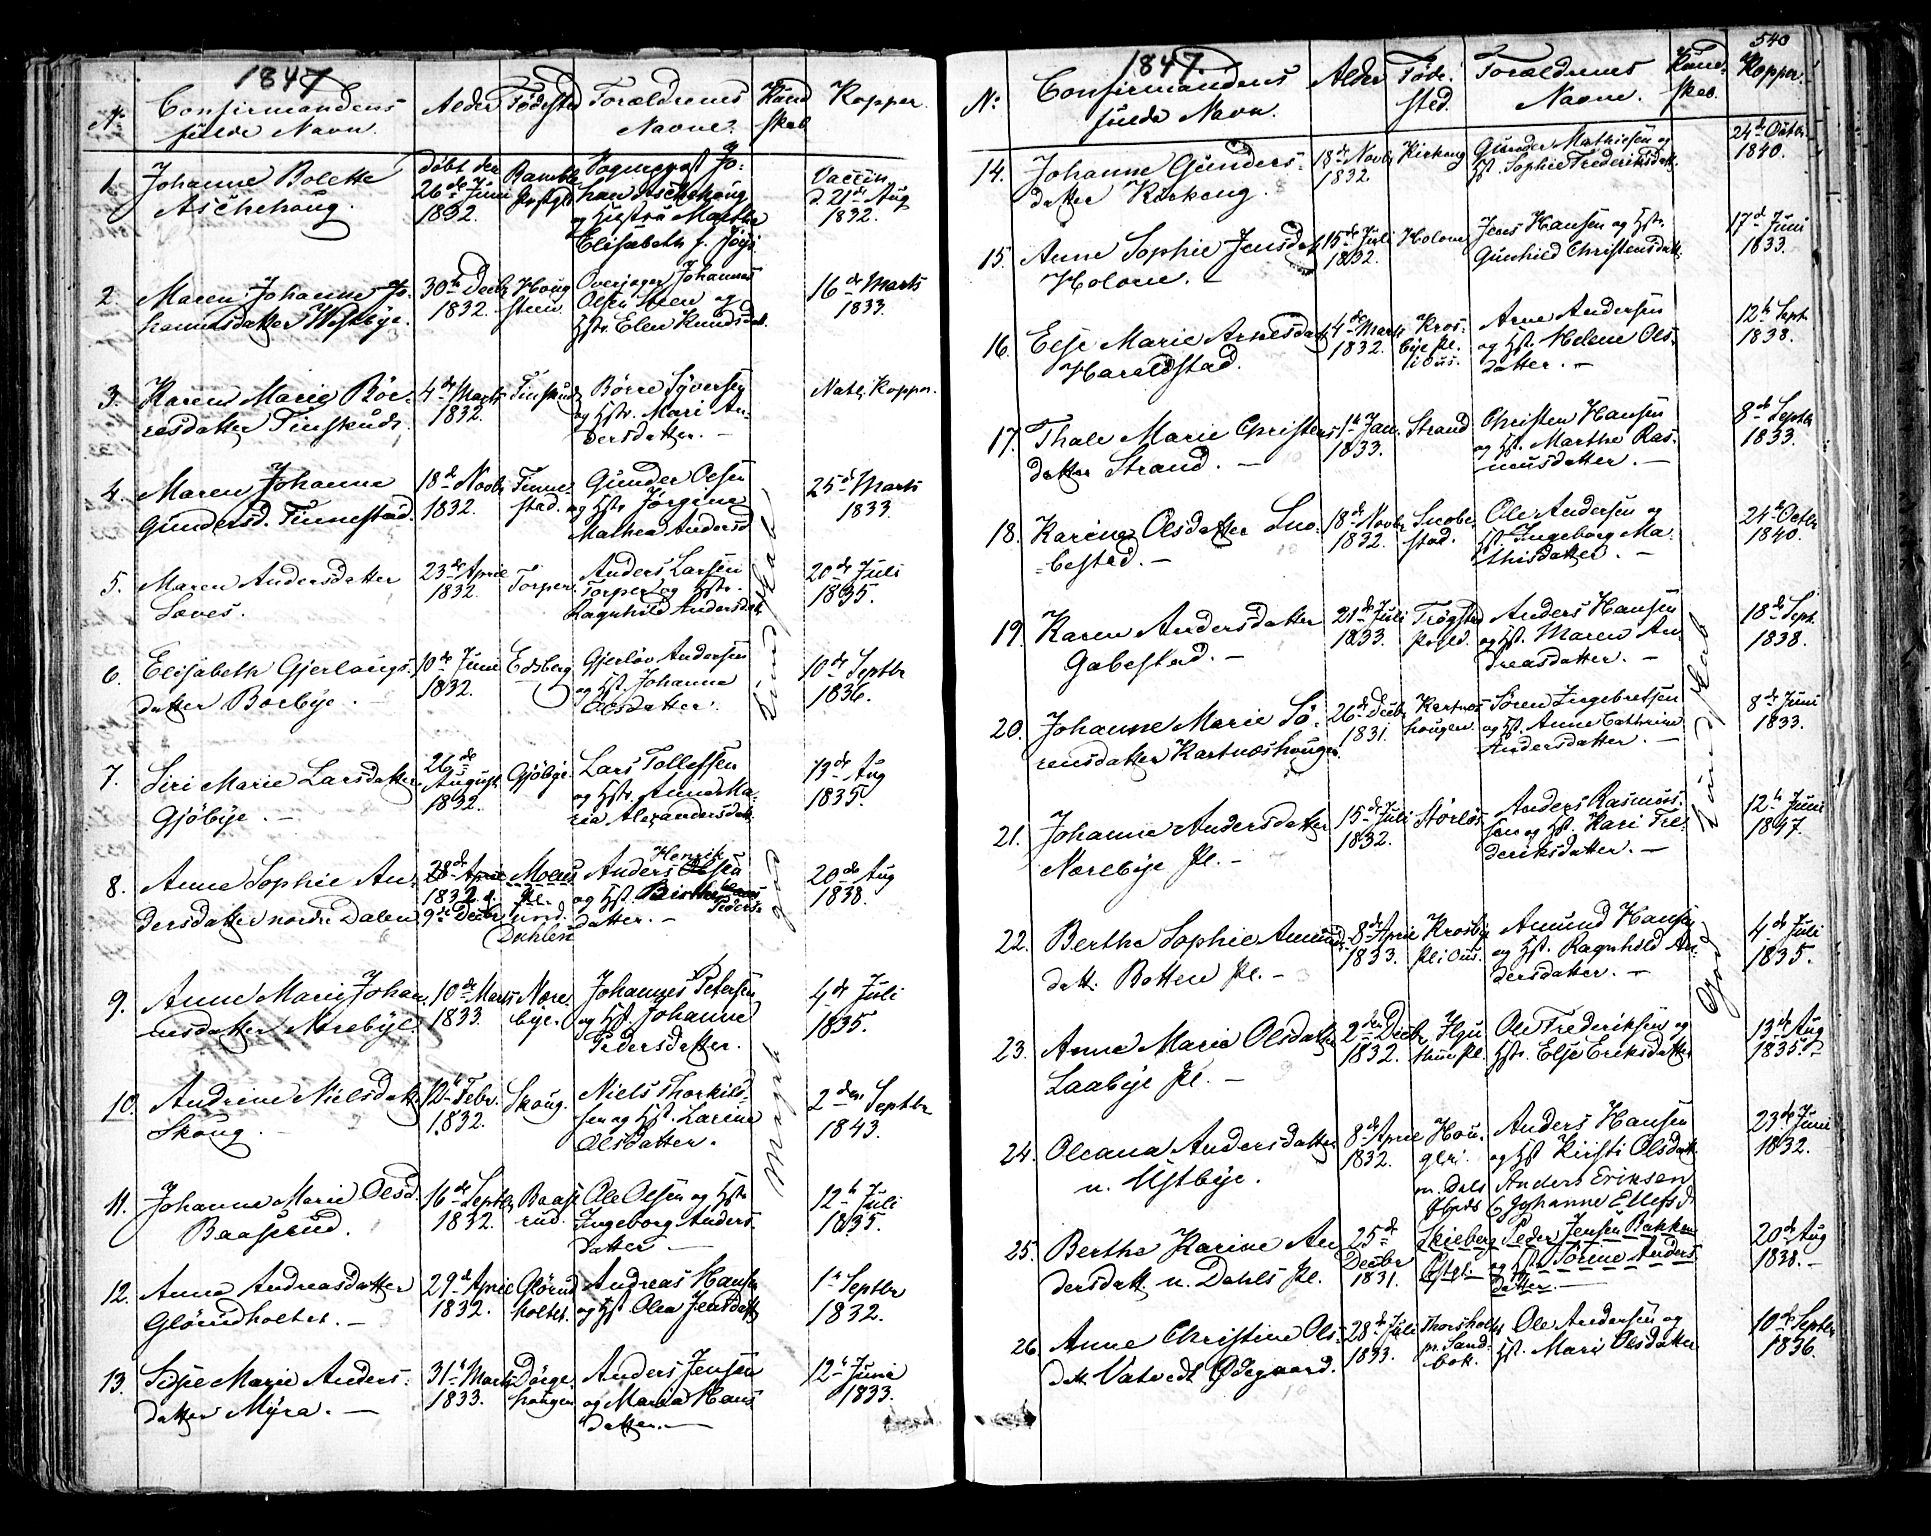 1847
N:
Confirmandens
fulde Navn.
Alder
Fødested
Forældrenes
Navne.
Kund
skab
Kopper.
1.
Johanne Bolette
Aschehoug.
Døbt den
26de Juni
1832.
Bamble
Pgld
Sognepræst Jo-
han Aschehoug
og Hustru Marthe
Elisabeth f.
Vaccin
d. 21de Aug
1832.
2.
Maren Johanne Jo-
hannesdatter Westbye.
30te Decbr
1832.
Houg
steen.
Overjæger Johannes
Olsen Steen og
Hstr. Elen Knudsdat.
16de Marts
1833.
3.
Karen Marie Bør-
resdatter Finskuds.
4de Marts
1832.
Finskuds
Børre Syversen
og Hstr. Mari An-
dersdatter. —
Natl. Kopper.
4.
Maren Johanne
Gundersd. Finnestad.
18de Novbr
1832.
Finne-
stad.
Gunder Olsen
og Hstr Jørgine
Mathea Andersd
25de Marts
1833.
5.
Maren Andersdatter
Løves.
23de April
1832.
Torper.
Anders Larsen
Torper og Hstr.
Ragnhild Andersdat.
20de Juli
1835.
6.
Elisabeth Gjerlaugs-
datter Borbye.
10de Juni
1832.
Edsberg
Gjerløv Andersen
og Hst. Johanne
Olsdatter.
10de Septbr
1836.
7.
Siri Marie Larsdatter
Gjöbye. —
26de
August
1832.
Gjöbye.
Lars Tollefsen
og Hstr. Anne Ma-
ria Alexandersdat.
13de Aug
1835.
8.
Anne Sophie An-
dersdatter nordre Dalen
28de April
1832.
9de Decbr
Moens
Pl.
nord.
Dahlen
Henrik
Anders Olsen
og Hst. Birthe
Peders-
datter. —
20de Aug
1838.
9.
Anne Marie Johan-
nesdatter Nærebye.
10de Marts
1833.
Nære-
bye.
Johannes Petersen
og Hst. Johanne
Pedersdatter.
4de Juli
1835.
10.
Andrine Nielsdatt
Skoug. —
12te Febr.
1832.
Skoug.
Niels Thorkild-
sen og Hst. Larine
Olsdatter.
2den Septbr
1843.
11.
Johanne Marie Olsd.
Baaserud.
16de Septbr
1832.
Baase
rud.
Ole Olsen og Hstr
Ingeborg Anders-
datter —
12te Juli
1835.
12.
Anne Andreasdatter
Glörudholtet. —
29de April
1832.
Glörud
holtet.
Andreas Hansen
og Hst Olea Jensdatt
1te Septbr
1832.
13.
Sidse Marie Anders-
datter Myra. —
31te Marts
1833.
Dørge-
hougen
Anders Jensen
og Maria Hans
datter. —
12te Juni
1833.
Meget god Kundskab
540
1847
N:
Confirmandens
fulde Navn.
Alder
Føde-
sted.
Forældrenes
Navne.
Kund-
skab.
Kopper.
14.
Johanne Gunders-
datter Kirkeng.
18de Novbr
1832.
Kirkeng
Gunder Mathiesen og
Hst. Sophie Frederiksdatt.
24de Octbr.
1840.
15.
Anne Sophie Jensdat
Holom. —
15de Juli
1832.
Holom
Jens Hansen og Hstr.
Gunhild Christensdatt.
17de Juni
1833.
16.
Else Marie Arnesdatt
Haraldstad.
4de Marts
1832.
Kros-
bye Pl.
i Ous.
Arne Andersen
og Hst. Helene Ols-
datter. —
12te Sept.
1838.
17.
Thale Marie Christens
datter Strand. —
1te Jan.
1833.
Strand
Christen Hansen
og Hst. Marthe Ras-
musdatter. —
8de Septbr
1833.
18.
Karine Olsdatter Sno-
bestad. —
18de Novbr
1832.
Snobe
stad.
Ole Andersen og
Hst. Ingeborg Ma-
thisdatter. —
24de Octbr
1840.
19.
Karen Andersdatter
Gabestad. —
21de Juli
1833.
Trøgstad
Prgld.
Anders Hansen
og Hst. Maren An
dreasdatter. —
18de Sept.
1838.
20.
Johanne Marie Sö-
rensdatter Kartnæshougen.
26de Decbr
1831.
Kartnæs
hougen.
Søren Ingebretsen
og Hst. Anne Cathrine
Andersdatter. —
8de Juni
1833.
21.
Johanne Andersdatter
Nærebye Pl. —
15de Juli
1832.
Anders Rasmus-
sen og Hst. Kari Fre-
deriksdatter. —
12te Juni
1847.
22.
Berthe Sophie Amunds
datt. Botten Pl. —
8de April
1833.
Krosbye
Pl. i Ous.
Amund Hansen
og Hst. Ragnhild An-
dersdatter. —
4de Juli
1835.
23.
Anne Marie Olsdatter
Laabye Pl. —
2den Decbr
1832.
Pl.
Ole Frederiksen og
Hstr. Else Eriksdatter
13de Aug
1835. —
24.
Oleana Andersdatter
n. Ustbye.
8de April
1832.
Anders Hansen
og Hst Kirsti Olsdatt.
23de Juni
1832.
n. Dals
Anders Eriksen
& Johanne Ellefsd.
25.
Berthe Karine An
dersdatt. n. Dahls Pl.
25de
Decbr
1831.
Skieberg
Pstgl.
Peder Jensen Bakken
og Hst. Sørine Anders
datter.
20de Aug
1838. —
26.
Anne Christine Ols-
datt. Vatvedt Ødegaard.
28de Juli
1833.
Thorsholt
Ole Andersen og
Hst. Mari Olsdatter
10de Septbr
1836.
God Kundskab